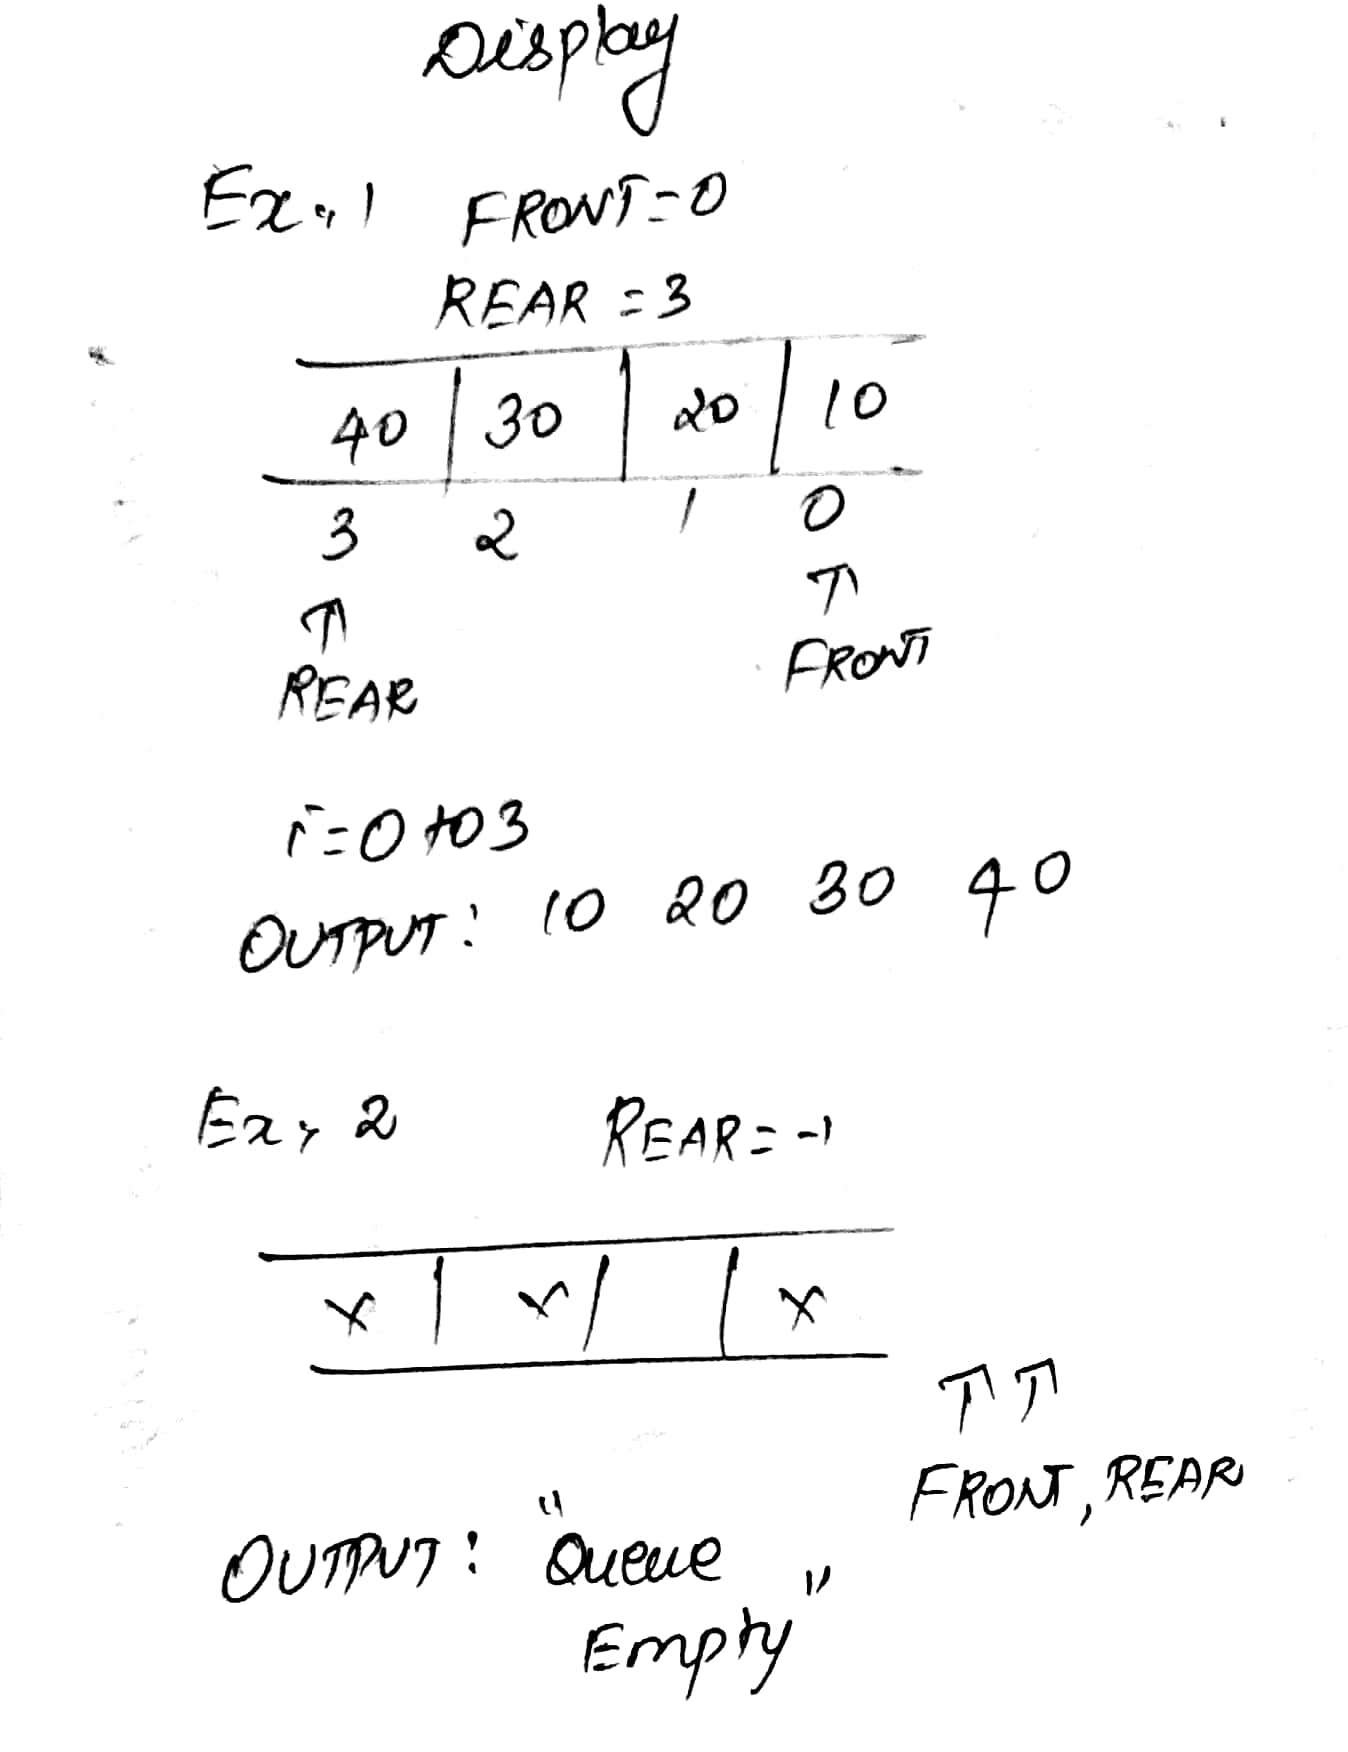 Display
Ex., 1 FRONT=0
REAR = 3
40 | 30 | 20 | 10
3 2 1 0
↑ ↑
REAR FRONT
i=0 to 3
OUTPUT: 10 20 30 40
Ex, 2 REAR = -1
x | x | | x
↑ ↑
FRONT, REAR
OUTPUT: "Queue
Empty"